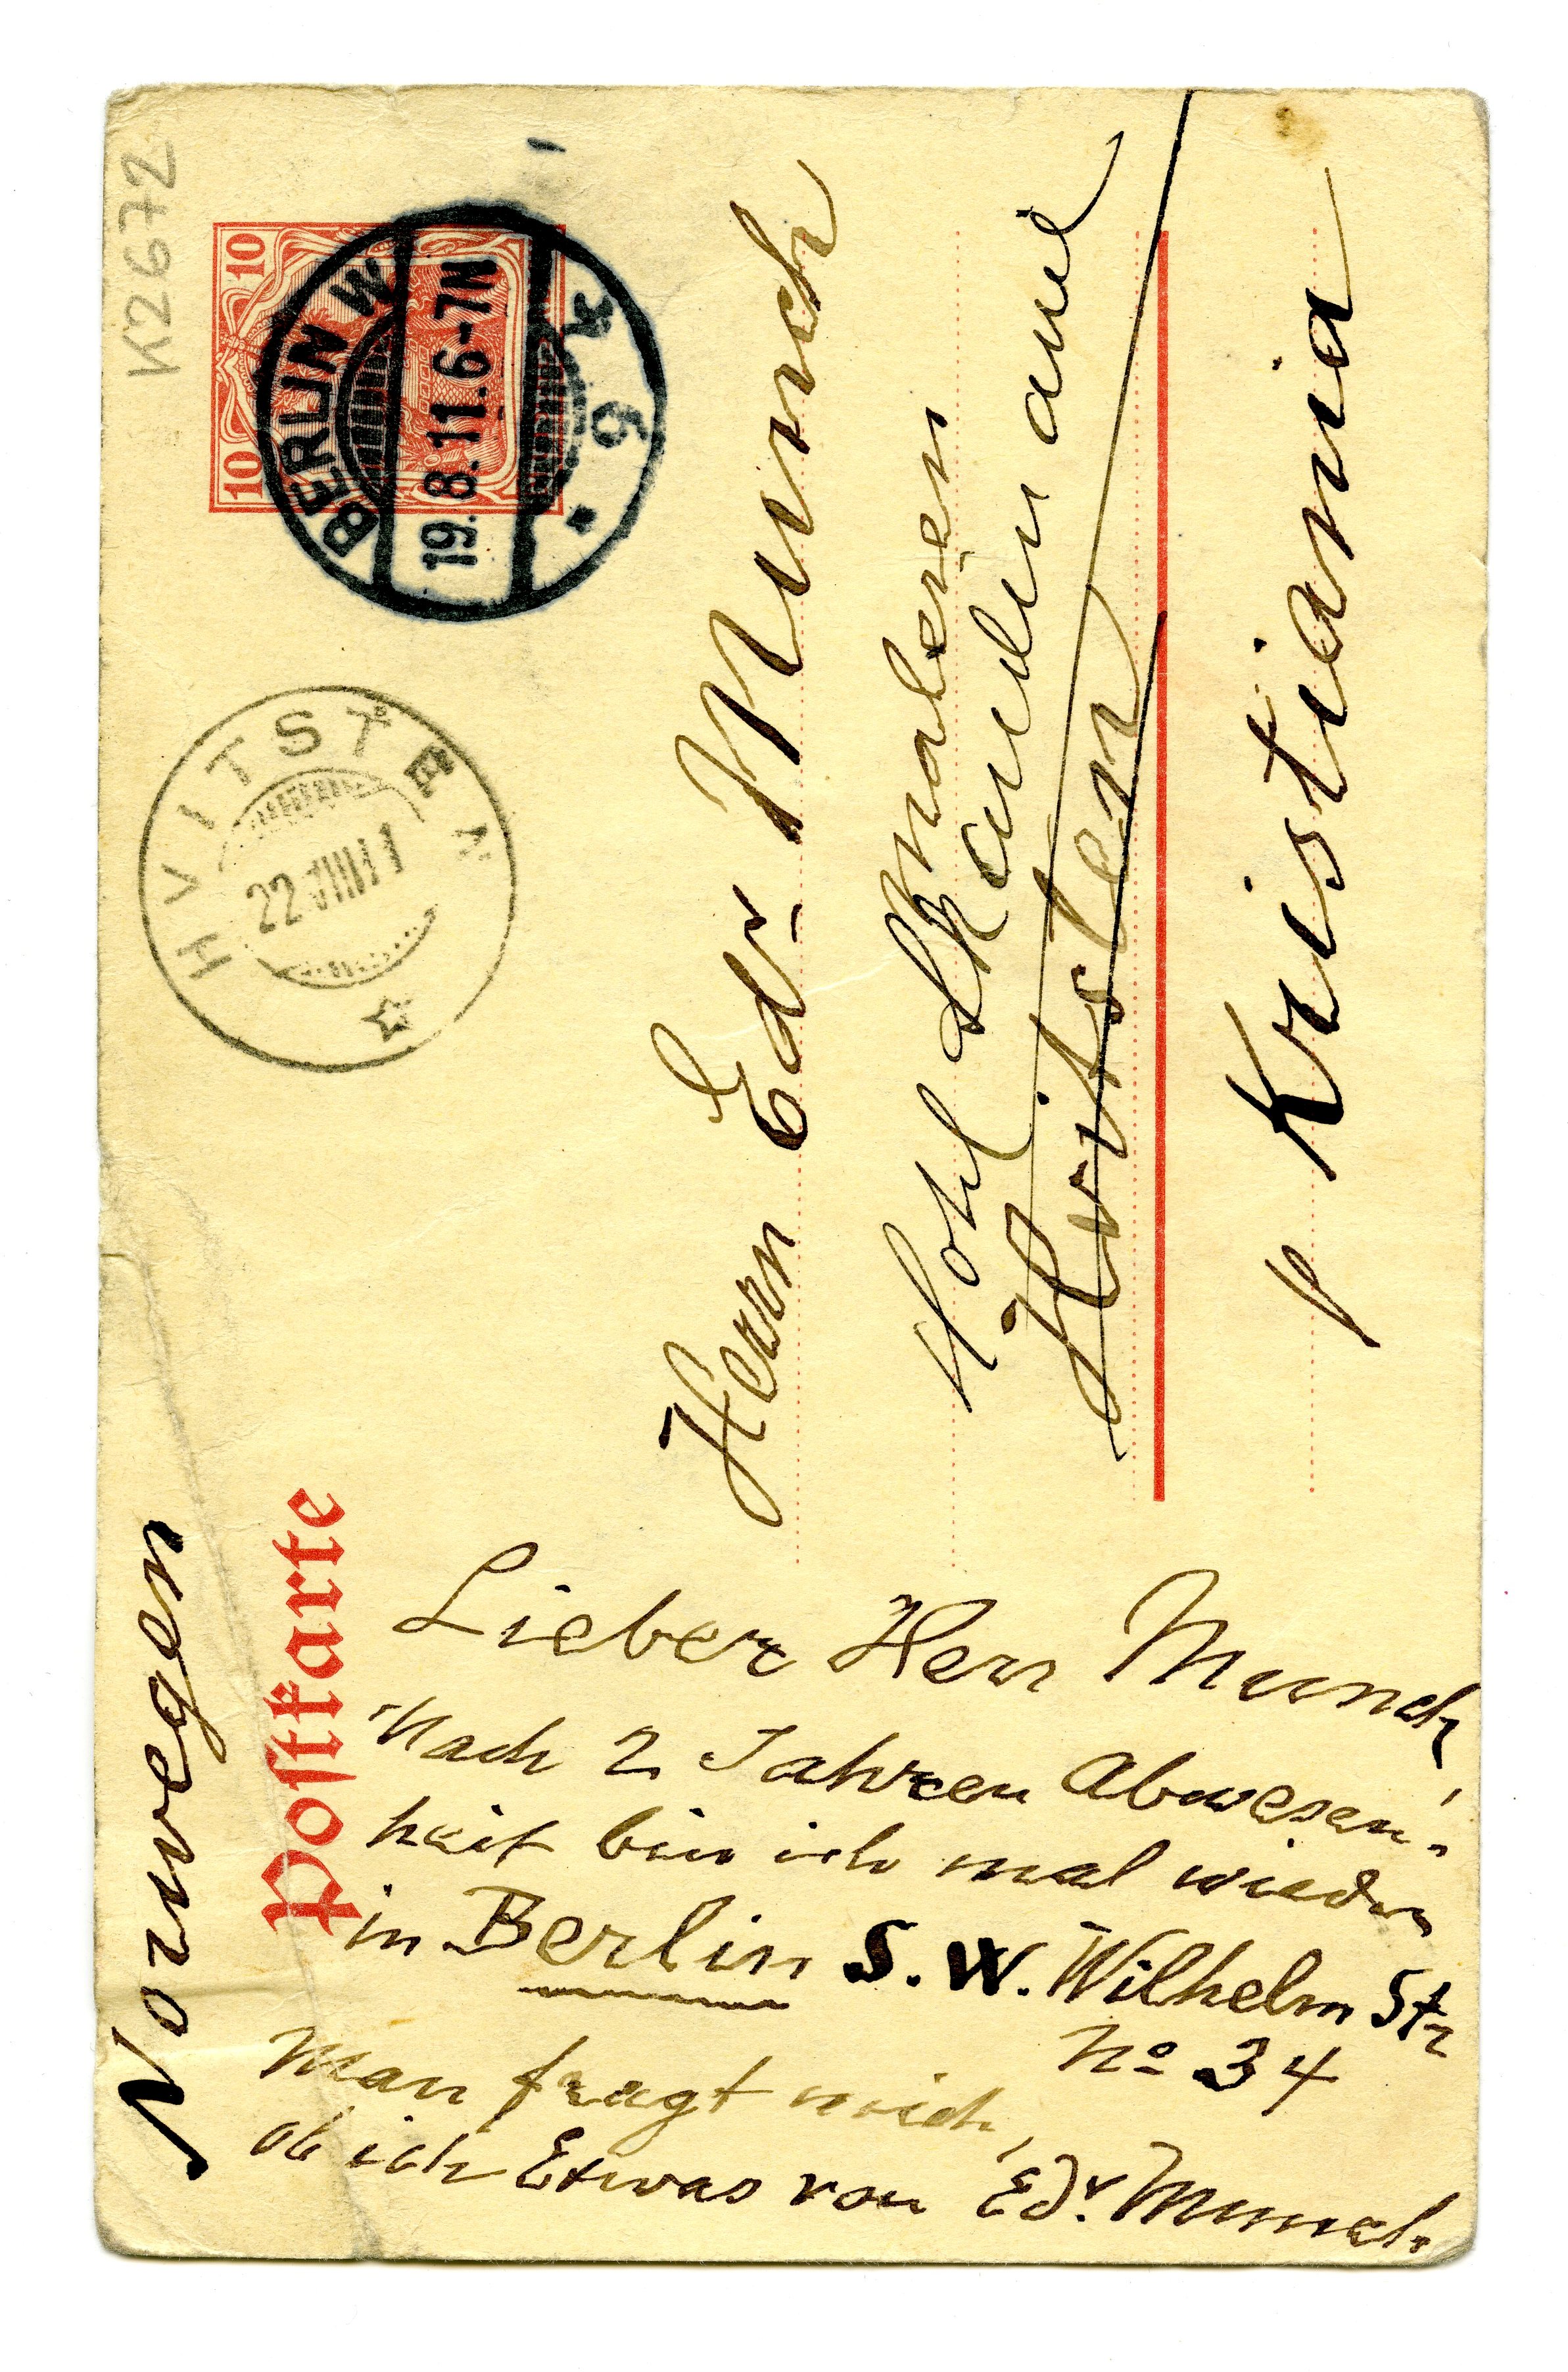 K2672
10 10
BERLIN W
19.8.11.6-7N
* 9 k
HVITSTEN
22 VIII 11
Norwegen
Postkarte
Herrn Edv Munch
Maleren
Hotel Skandinavie
Hvitsten
p Kristiania
Lieber Herr Munch
Nach 2 Jahren Abwesen-
heit bin ich mal wieder
in Berlin S.W. Wilhelm Str
No 34
Man fragt mich,
ob ich Etwas von Edv. Munch